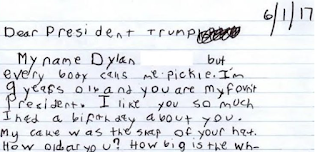 6/1/17
Dear President Trump
My name Dylan but
every body calls me pickle. I'm
9 years old and you are my favorit
President. I like you so much
I had a birthday about you.
My cake was the shap of your hat.
How old are you? How big is the wh-